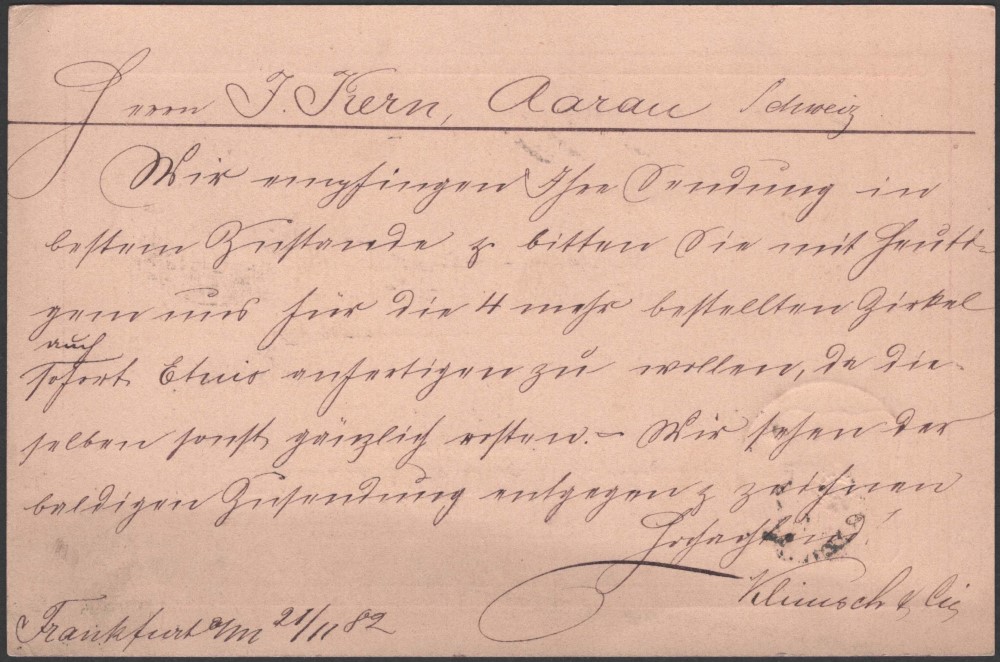 Herrn J. Kern, Aarau Schweiz
Wir empfingen Ihre Sendung in
bestem Zustande & bitten Sie mit Heuti-
gem uns für die 4 mehr bestellten Zirkel
auch
sofort Etuis anfertigen zu wollen, da die-
selben sonst gänzlich rosten. – Wir sehen der
baldigen Zusendung entgegen & zeichnen
Hochachtend
Klimsch & Cie
Frankfurt a/M 21/11 82